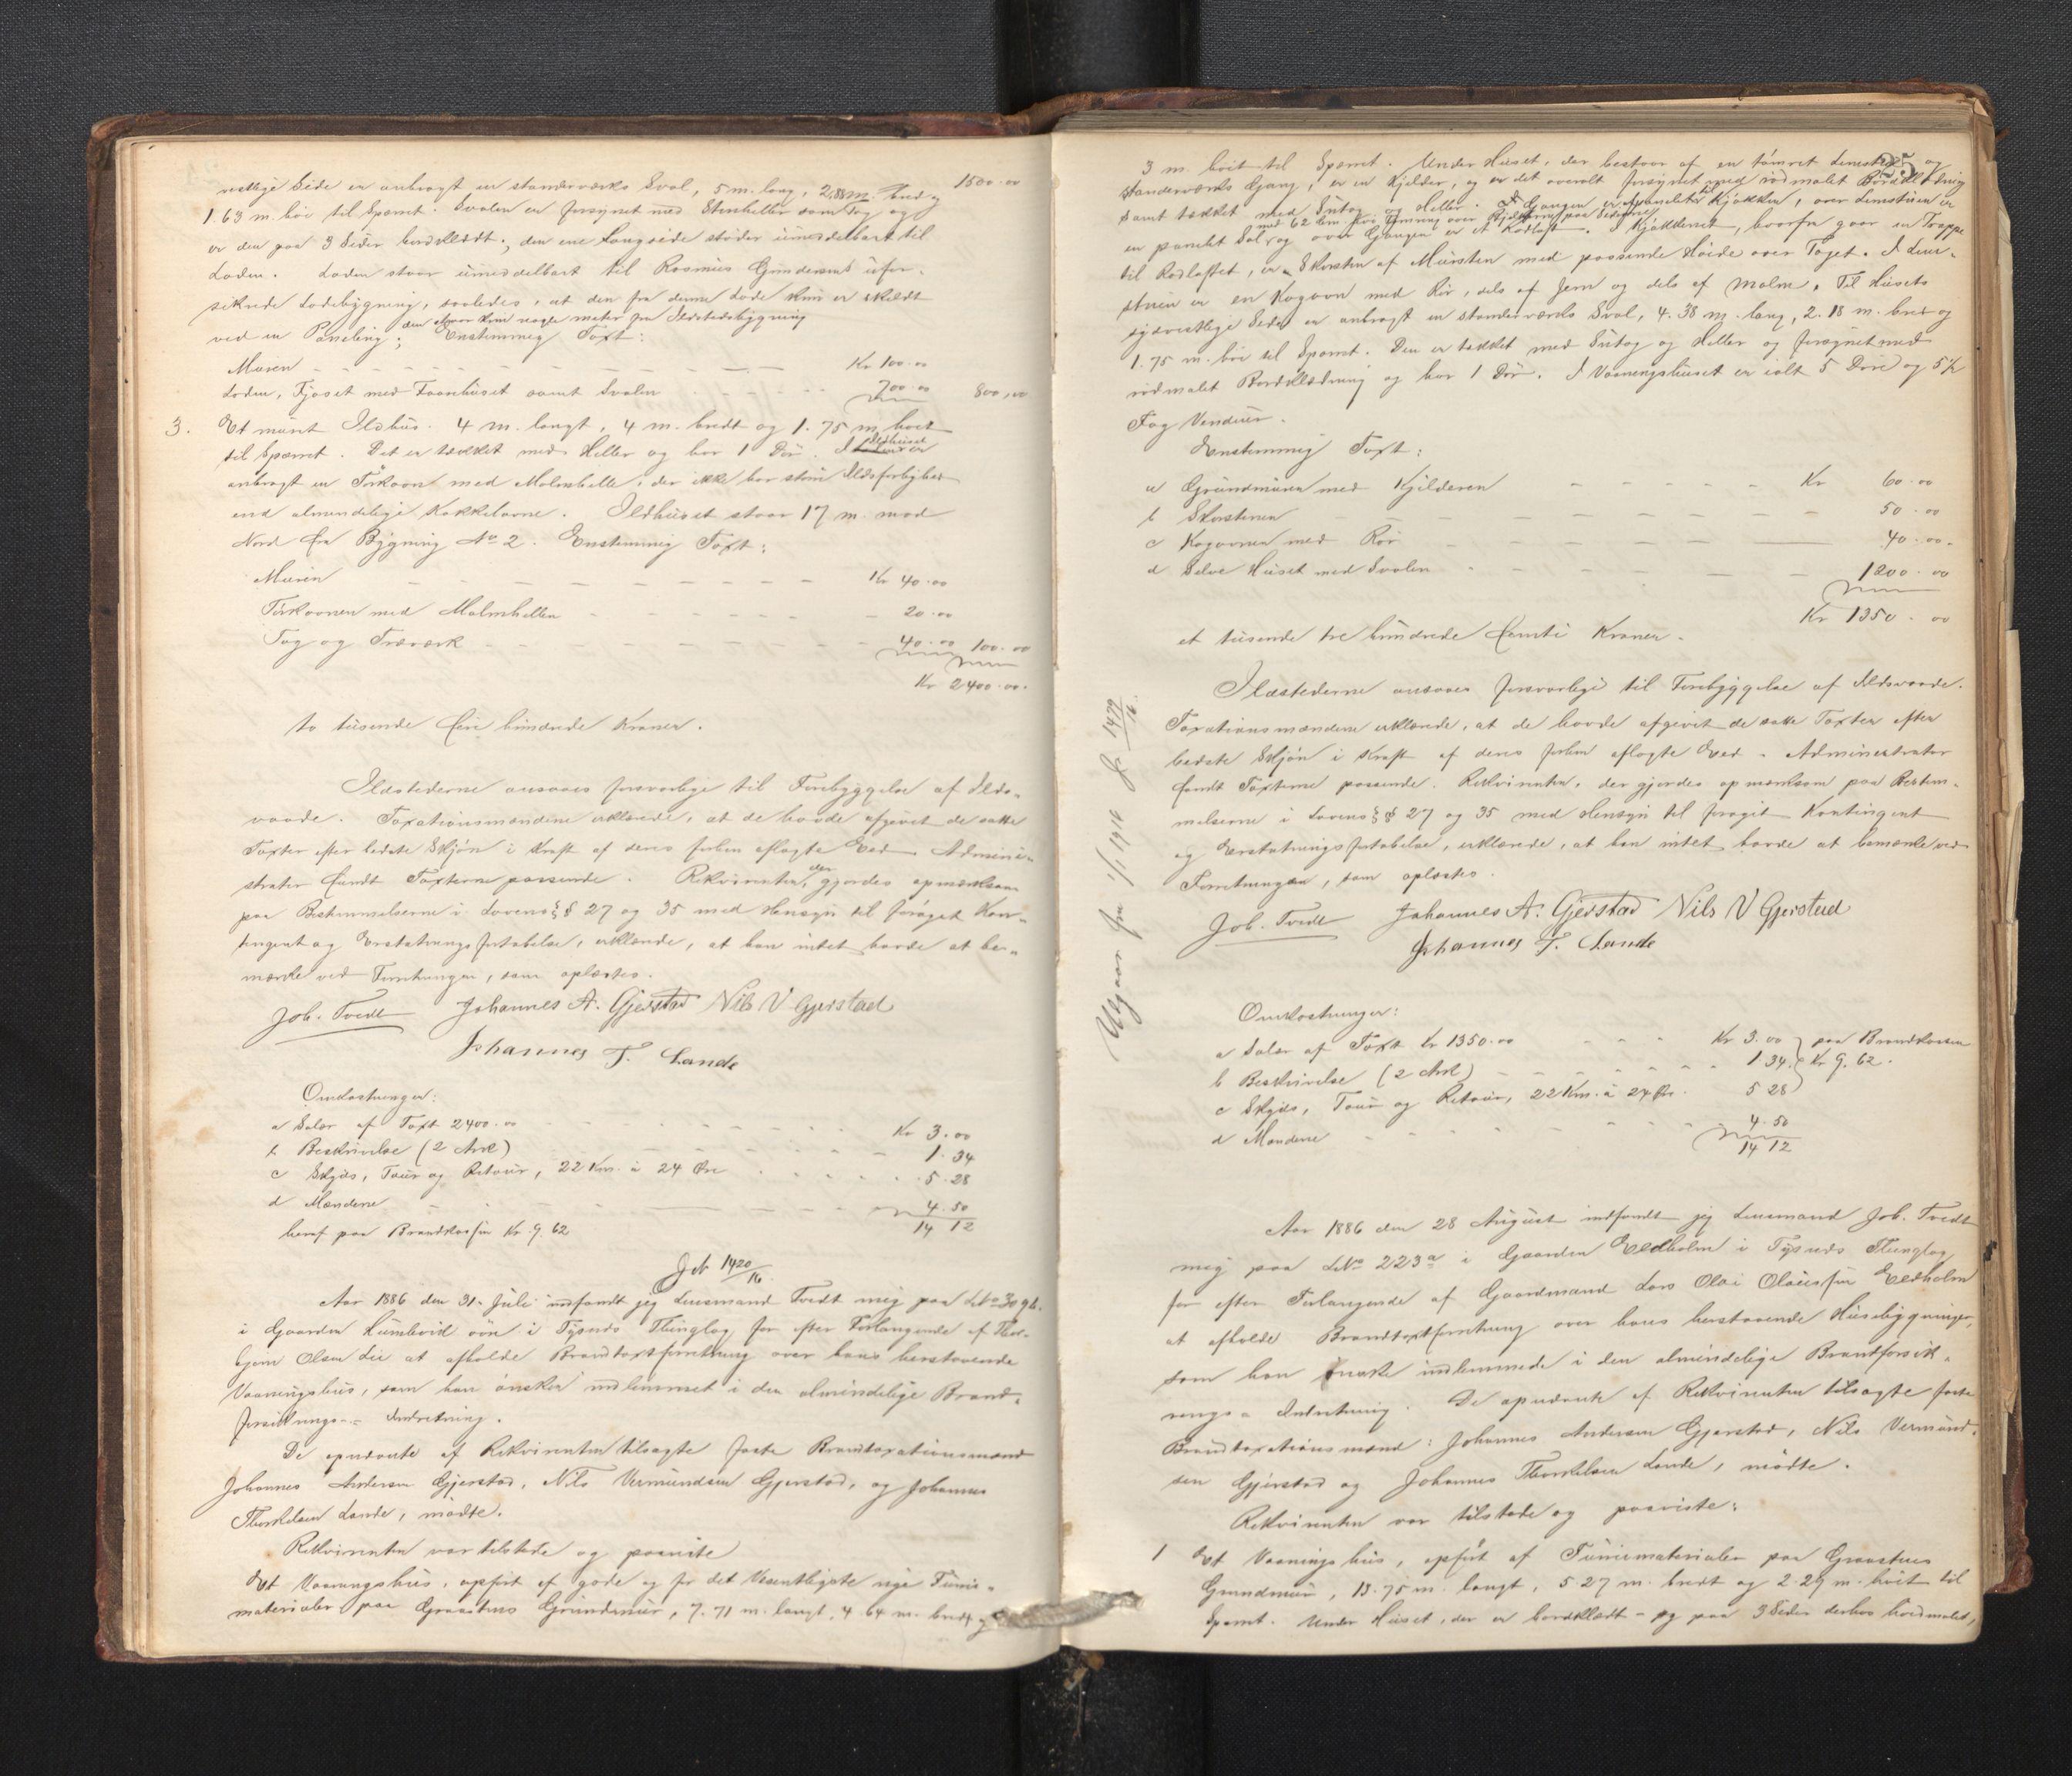 vestlige Side er anbragt en standerværks Sval, 5 m. lang, 2,88 m. bred og 1500.00
1.63 m. høi til Spærret. Svalen er forsynet med Stenheller som Tag og
er den paa 3 Sider bordklædt; den ene Langside støder umiddelbart til
Laden. Laden staar umiddelbart til Rasmus Gundersens ufor-
sikrede Ladebygning, saaledes, at den fra denne Lade kun er skildt
ved en Paneling; den staar kun nogle meter fra Ildstedsbygning
Enstemmig Taxt:
Muren Kr 100.00
Laden, Fjøset med Faarehuset samt Svalen 700.00 800,00
3. Et muret Ildhus. 4 m. langt, 4 m. bredt og 1.75 m. høit
til Spærret. Det er tækket med Heller og har 1 Dør. I Ildhuset er
anbragt en Tørkeovn med Malmhelle, der ikke har større Ildsfarlighed
end almindelige Kakkelovne. Ildhuset staar 17 m. mod
Nord fra Bygning No 2. Enstemmig Taxt:
Muren Kr 40.00
Tørkeovnen med Malmhellen 20.00
Tag og Træværk 40.00 100.00
Kr 2400.00.
to tusende fire hundrede Kroner.
Ildstederne ansaaes forsvarlige til Forebyggelse af Ilds-
vaade. Taxationsmændene erklærede, at de havde afgivet de satte
Taxter efter bedste Skjøn i Kraft af deres forhen aflagte Ed. Admini-
strator fandt Taxterne passende. Rekvirenten, der gjordes opmærksom
paa Bestemmelserne i Lovens §§ 27 og 35 med Hensyn til forøget Kon-
tingent og Erstatnings fortabelse, erklærede, at han intet havde at be-
mærke ved Forretningen, som oplæstes.
Joh. Tvedt Johannes A. Gjerstad Nils V Gjerstad
Johannes T. Lande
Omkostninger:
a Salær af Taxt 2400.00 Kr 3.00
b Beskrivelse (2 Ark) 1.34
c Skyds, Tour og Retour, 22 Km. a 24 Øre 5.28
d Mændene 4.50
heraf paa Brandkassen Kr. 9.62 14 12
Jr 1420/16.
Aar 1886 den 31. Juli indfandt jeg Lensmand Tvedt mig paa
i Gaarden i Tysnes Thinglag for efter Forlangende af Thor-
bjørn Olsen at afholde Brandtaxtforretning over hans herstaaende
Vaaningshus, som han ønsker indlemmet i den almindelige Brand-
forsikrings-Indretning.
De opnævnte af Rekvirenten tilsagte faste Brandtaxationsmænd
Johannes Andersen Gjerstad, Nils Vermundsen Gjerstad, og Johannes
Thorkelsen Lande, mødte.
Rekvirenten var tilstede og paaviste
Et Vaaningshus, opført af gode og for det Væsentligste nye Furu-
materialer paa Graastens Grundmur, 7.71 m. langt, 4.64 m. bredt og
25
3 m. høit til Spærret. Under Huset, der bestaar af en tømret Lemstue og
standerværks Gang, er en Kjelder, og er det overalt forsynet med rødmalet Bordklædning
samt tækket med Sutag og Heller. I Gangen er til Kjøkken, over Lemstuen er
en panelet Sal, og over Gangen er et Rodloft. I Kjøkkenet, hvorfra gaar en Trappe
til Rodloftet, er en Skorsten af Mursten med passende Høide over Taget. I Lem-
stuen er en Kogeovn med Rør, dels af Jern og dels af Malm. Til Husets
sydvestlige Side er anbragt en standerværks Sval, 4.38 m. lang, 2.18 m. bred og
1.75 m. høi til Spærret. Den er tækket med Sutag og Heller og forsynet med
rødmalet Bordklædning og har 1 Dør. I Vaaningshuset er ialt 5 Døre og 5½
Fag Vinduer.
Enstemmig Taxt:
a Grundmuren med Kjelderen Kr 60.00
b Skorstenen 50.00
c Kogeovnen med Rør 40.00.
d Selve Huset med Svalen 1200.00
Kr 1350.00
et tusende tre hundrede femti Kroner.
Udgaar fra 1/1 1914 Jr 1479/16.
Ildstederne ansaaes forsvarlige til Forebyggelse af Ildsvaade.
Taxationsmændene erklærede, at de havde afgivet de satte Taxter efter
bedste Skjøn i Kraft af deres forhen aflagte Ed. Administrator
fandt Taxterne passende. Rekvirenten, der gjordes opmærksom paa Bestem-
melserne i Lovens §§ 27 og 35 med Hensyn til forøget Kontingent
og Erstatnings fortabelse, erklærede, at han intet havde at bemærke ved
Forretningen, som oplæstes.
Joh. Tvedt Johannes A. Gjerstad Nils V Gjerstad
Johannes T. Lande
Omkostninger:
a Salær af Taxt Kr 1350.00 Kr 3.00 paa Brandkassen
b Beskrivelse (2 Ark) 1.34. Kr 9.62.
c Skyds, Tour og Retour, 22 Km. a 24 Øre. 5 28
d Mændene 4.50
14 12
Aar 1886 den 28 August indfandt jeg Lensmand Joh. Tvedt
mig paa LNo 223a i Gaarden Eedholm i Tysnes Thinglag
for efter Forlangende af Gaardmand Lars Olai Olaussen Eedholm
at afholde Brandtaxtforretning over hans herstaaende Husebygninger,
som han ønske indlemmede i den almindelige Brandforsik-
rings-Indretning. De opnævnte af Rekvirenten tilsagte faste
Brandtaxationsmænd: Johannes Andersen Gjerstad, Nils Vermund-
sen Gjerstad og Johannes Thorkelsen Lande, mødte.
Rekvirenten var tilstede og paaviste:
1 Et Vaanings hus, opført af Furumaterialer paa Graastens
Grundmur, 13.75 m. langt, 5 27 m. bredt og 2.29 m. høit til
Spærret. Under Huset, der er bordklædt - og paa 3 Sider derhos hvidmalet,